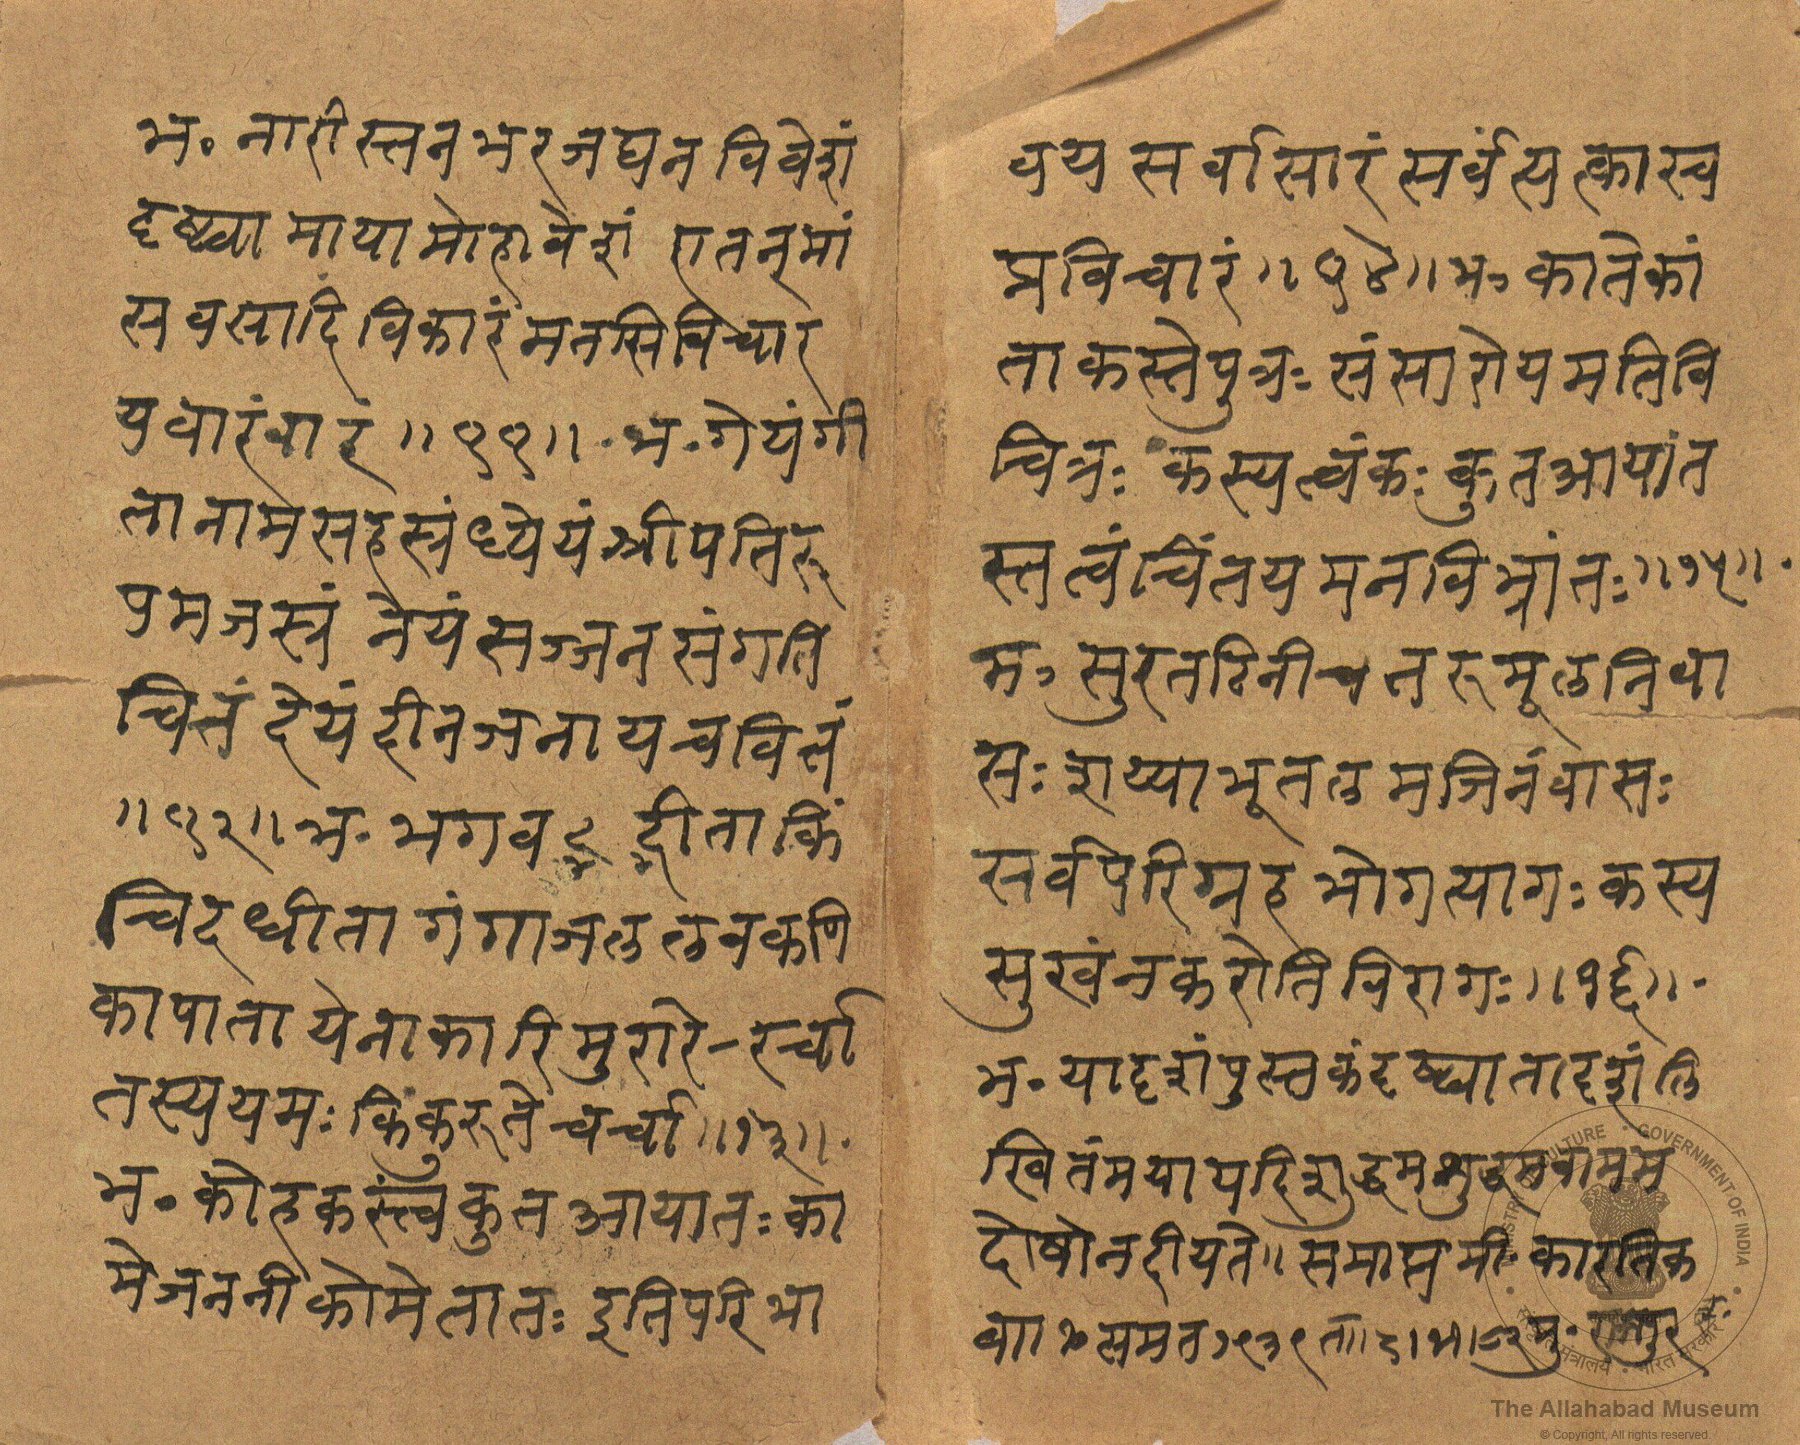 भ० नारीस्तनभरजघनविवेशं
दृष्ट्वा मायामोहावेशं एतनमां
सवसादिविकारं मनसिविचार
यवारंवारं ॥११॥ भ० गेयंगी
तानामसहस्त्रंध्येयंश्रीपतिरू
पमजस्त्रं नेयं सज्जनसंगति
चित्तं देयंदीनजनायचवित्तं
॥१२॥ भ० भगवद्गीताकिं
चिदधीता गंगाजललवकणि
कापीता येनाकारिमुरारे-रर्चा
तस्ययमः किंकुरुते चर्चा ॥१३॥
भ० कोहकस्त्वं कुत आयातः का
मेजननी कोमेतातः इतिपरिभा
वय सर्वासारं सर्वंत्यत्कास्व
प्नविचारं ॥१४॥ भ० कातेकां
ताकस्तेपुत्रः संसारोयमतिवि
चित्रः कस्यत्वंकः कुतआयांत
स्तत्वंचिंतयमनविभ्रांतः ॥१५॥
भ० सुरतटिनीचतरूमूलनिवा
सः शय्याभूतलमजिनंवासः
सर्वपरिग्रहभोगत्यागः कस्य
सुखंनकरोतिविरागः ॥१६॥
भ० यादृशंपुस्तकंदृष्ट्वातादृशंलि
खितंमयायदिशुद्धमशुद्धमवामम
दोषोनदीयते॥ समाप्तमीः कारतिक
समत १९३९
The Allahabad Museum
© Copyright, All rights reserved.